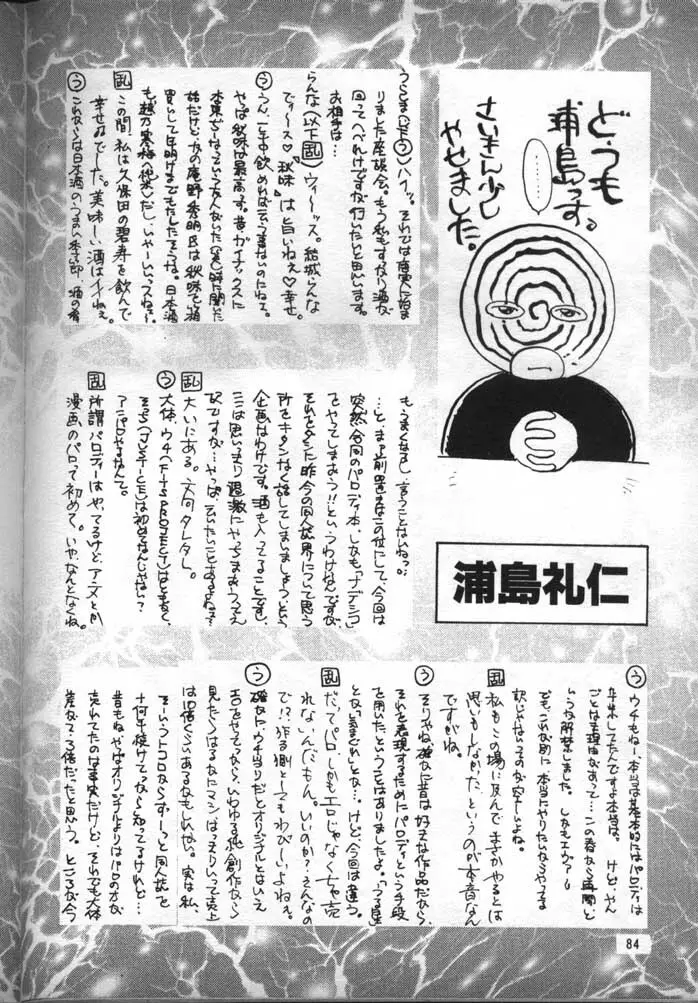 ど〜も
浦島っす。
…………
さいきん少し
やせました。
浦島礼仁
うらしま(以下う)ハイッ。それでは唐突に始ま
りました座談会。もう私もすでに酒が
回ってへべれけですが行いたいと思います。
お相手は…
らんな(以下乱)ウィーッス。結城らんな
でぃ〜ス♡『秋味』は旨いねぇ♡幸せ。
う うん、一年中飲めれば云う事ないのにねェ。
やぱ秋味は最高っす。昔ガイナックスに
始だけど、かの庵野秀明氏は秋味を箱
買いして年明けまでもたしたそうな。日本酒
も、越乃寒梅
乱 この間、私は久保田の碧寿を飲んで
幸せぬでした。美味しい酒はイイねぇ。
う これからは日本酒のうまい季節、酒の肴
もうまくなるし、言うことないねっ。
…と、まァ前置きはこの位にして、今回は
突然今回のパロディ本、しかも『ナデシコ』
をやってしまおう!!というわけなんですが、
それとまた昨今の同人誌界について思う
所をキタンなく話してしまいましょう、という
企画なわけです。酒も入ってることですし、
ここは思いきり過激にやっちまおうってえ
訳ですが…やっぱ云いたいことあるよねェ?
乱 大いにある。文句タレタレ。
う 大体、ウチ(FITS PROJECT)はともかく、
そっち(JUSTICE)は初めてなんじゃない?
アニパロやるなんて。
乱 所謂パロディはや、てるけど、アニメとか
漫画のパロって初めて。いや、なんとなくね。
う ウチもねー本当は基本的にはパロディは
年末してたんですよ本当は。けど、やん
ごとなき理由があって…この春から再開と
いうか解禁しました。しかもエヴァ〜
でも、これが別に本当にやりたいからやってる
訳じゃないってのが空しいよね。
乱 私もこの場に及んでまさかやるとは
思いもしなかった、というのが本音なん
ですがね。
う そりゃね、確かに昔は好きな作品だから、
それを表現するためにパロディという手段
を用いたということはありましたよ。「うる星」
とか「きまぐれ」とか…けど、今回は違う。
乱 だってパロ、しかもエロじゃなくちゃ売
れないんだもん。いいのか?、そんなの
で!?作る側としてもわびし〜いよねぇ。
う 確かにウチ当りだとオリジナルとはいえ
エロをやってるから、いわゆる純創作なら
見たらはるかにマシ。はっきりいって売上
は10倍くらいあるかもしれない。実は私、
そういうトコロならず〜っと同人誌を
十何年続けてるから知ってるけれど…
昔もねやぱオリジナルよりはパロの方が
売れてたのは事実だけど、それでも大体
差なんて3倍だったと思う。ところが今
84